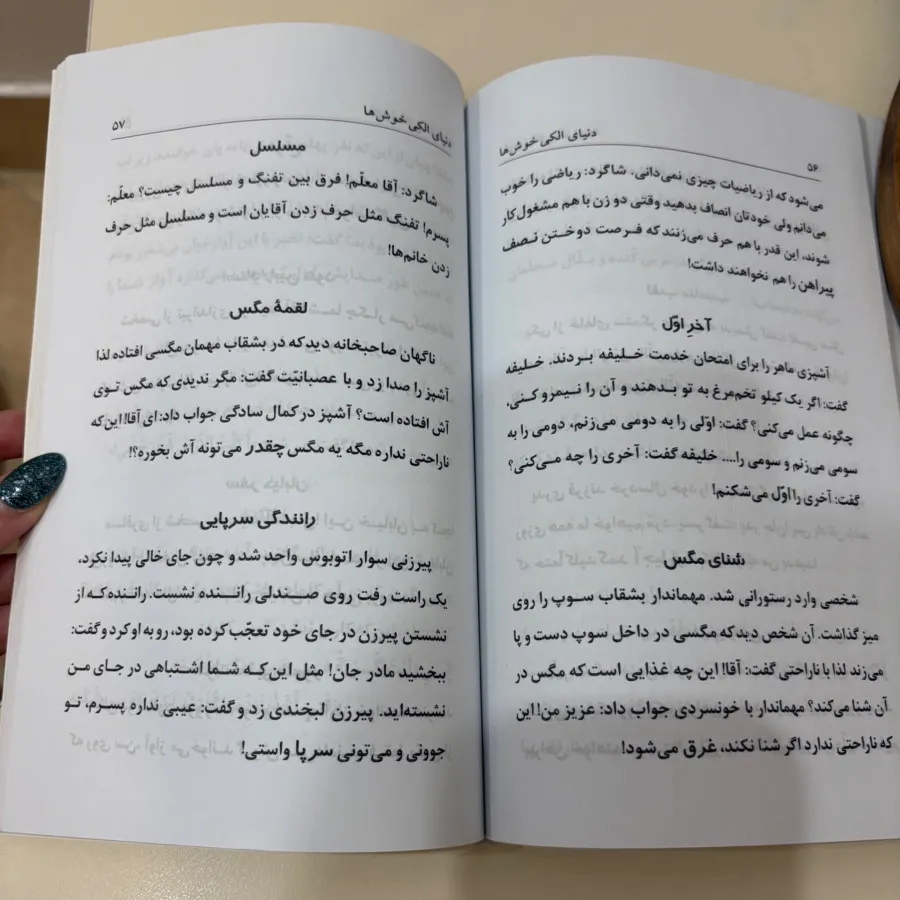 دنیای الکی خوش‌ها
۵۶
می‌شود که از ریاضیات چیزی نمی‌دانی. شاگرد: ریاضی را خوب
می‌دانم ولی خودتان انصاف بدهید وقتی دو زن با هم مشغول کار
شوند، این قدر با هم حرف می‌زنند که فرصت دوختن نصف
پیراهن را هم نخواهند داشت!
آخرِ اوّل
آشپزی ماهر را برای امتحان خدمت خلیفه بردند. خلیفه
گفت: اگر یک کیلو تخم‌مرغ به تو بدهند و آن را نیمرو کنی،
چگونه عمل می‌کنی؟ گفت: اوّلی را به دومی می‌زنم، دومی را به
سومی می‌زنم و سومی را.... خلیفه گفت: آخری را چه می‌کنی؟
گفت: آخری را اوّل می‌شکنم!
شنای مگس
شخصی وارد رستورانی شد. مهماندار بشقاب سوپ را روی
میز گذاشت. آن شخص دید که مگسی در داخل سوپ دست و پا
می‌زند لذا با ناراحتی گفت: آقا! این چه غذایی است که مگس در
آن شنا می‌کند؟ مهماندار با خونسردی جواب داد: عزیز من! این
که ناراحتی ندارد اگر شنا نکند، غرق می‌شود!
دنیای الکی خوش‌ها
۵۷
مسلسل
شاگرد: آقا معلّم! فرق بین تفنگ و مسلسل چیست؟ معلّم:
پسرم! تفنگ مثل حرف زدن آقایان است و مسلسل مثل حرف
زدن خانم‌ها!
لقمهٔ مگس
ناگهان صاحبخانه دید که در بشقاب مهمان مگسی افتاده لذا
آشپز را صدا زد و با عصبانیّت گفت: مگر ندیدی که مگس توی
آش افتاده است؟ آشپز در کمال سادگی جواب داد: ای آقا! این که
ناراحتی نداره مگه یه مگس چقدر می‌تونه آش بخوره؟!
رانندگی سرپایی
پیرزنی سوار اتوبوس واحد شد و چون جای خالی پیدا نکرد،
یک راست رفت روی صندلی راننده نشست. راننده که از
نشستن پیرزن در جای خود تعجّب کرده بود، رو به او کرد و گفت:
ببخشید مادر جان! مثل این که شما اشتباهی در جای من
نشسته‌اید. پیرزن لبخندی زد و گفت: عیبی نداره پسرم، تو
جوونی و می‌تونی سرپا واستی!